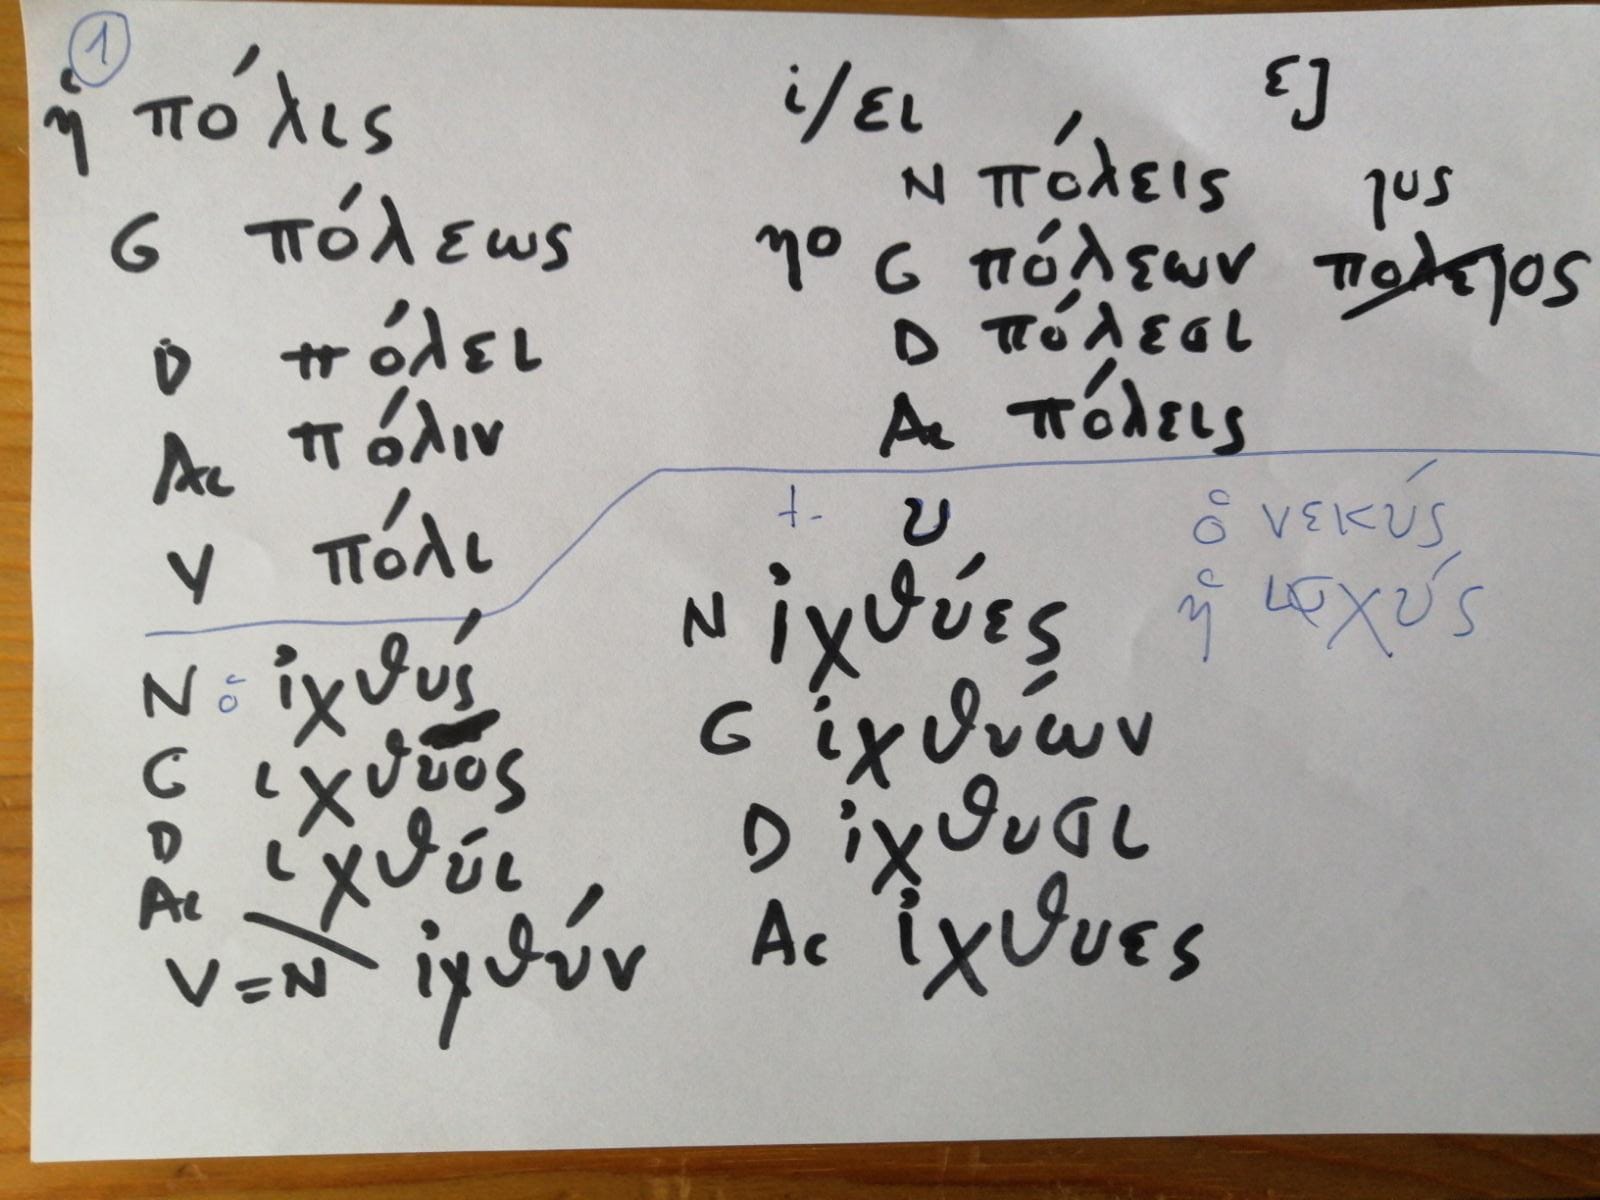 1
ἡ πόλις
G πόλεως
D πόλει
Ac πόλιν
V πόλι
ι/ει εj
N πόλεις jυς
ηο G πόλεων πολεjος
D πόλεσι
Ac πόλεις
N ὁ ἰχθύς
G ιχθυος
D ιχθύι
Ac
V=N ἰχθύν
t- υ
N ἰχθύες
G ἰχθύων
D ἰχθυσι
Ac ἰχθυες
ὁ νεκύς
ἡ ισχύς